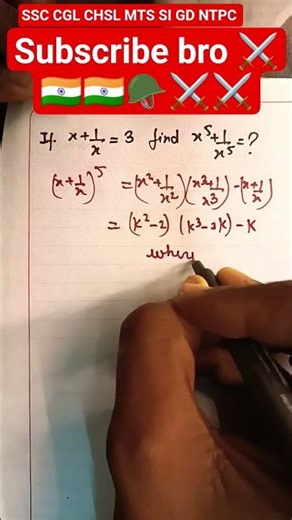 SSC CGL CHSL MTS SI GD NTPC
Subscribe bro ⚔️
🇮🇳🇮🇳🪖⚔️⚔️
If x+1/x = 3 find x⁵+1/x⁵ = ?
(x+1/x)⁵ = (x²+1/x²)(x³+1/x³)-(x+1/x)
= (k²-2) (k³-3k)-k
when